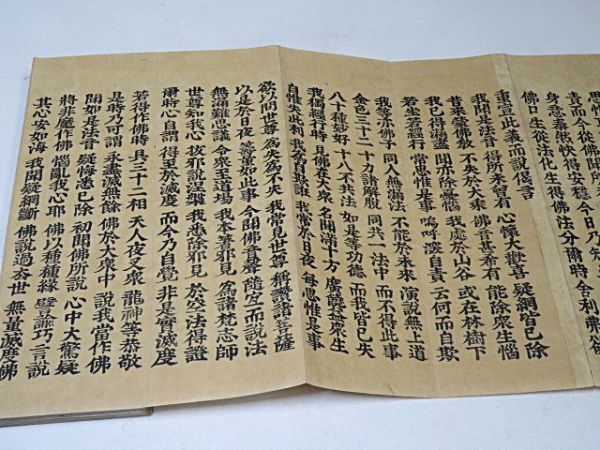 責而今
身意泰然快得安穩今日乃知
佛口生從法化生得佛法分爾時舍利弗欲
重宣此義而說偈言
我聞是法音 得所未曾有 心懷大歡喜 疑網皆已除
昔來蒙佛教 不失於大乘 佛音甚希有 能除眾生惱
我已得漏盡 聞亦除憂惱 我處於山谷 或在林樹下
若坐若經行 常思惟是事 嗚呼深自責 云何而自欺
我等亦佛子 同入無漏法 不能於未來 演說無上道
金色三十二 十力諸解脫 同共一法中 而不得此事
八十種妙好 十八不共法 如是等功德 而我皆已失
我獨經行時 見佛在大眾 名聞滿十方 廣饒益眾生
自惟失此利 我為自欺誑 我常於日夜 每思惟是事
欲以問世尊 為失為不失 我常見世尊 稱讚諸菩薩
以是於日夜 籌量如此事 今聞佛音聲 隨宜而說法
無漏難思議 令眾至道場 我本著邪見 為諸梵志師
世尊知我心 拔邪說涅槃 我悉除邪見 於空法得證
爾時心自謂 得至於滅度 而今乃自覺 非是實滅度
若得作佛時 具三十二相 天人夜叉眾 龍神等恭敬
是時乃可謂 永盡滅無餘 佛於大眾中 說我當作佛
聞如是法音 疑悔悉已除 初聞佛所說 心中大驚疑
將非魔作佛 惱亂我心耶 佛以種種緣 譬喻巧言說
其心安如海 我聞疑網斷 佛說過去世 無量滅度佛